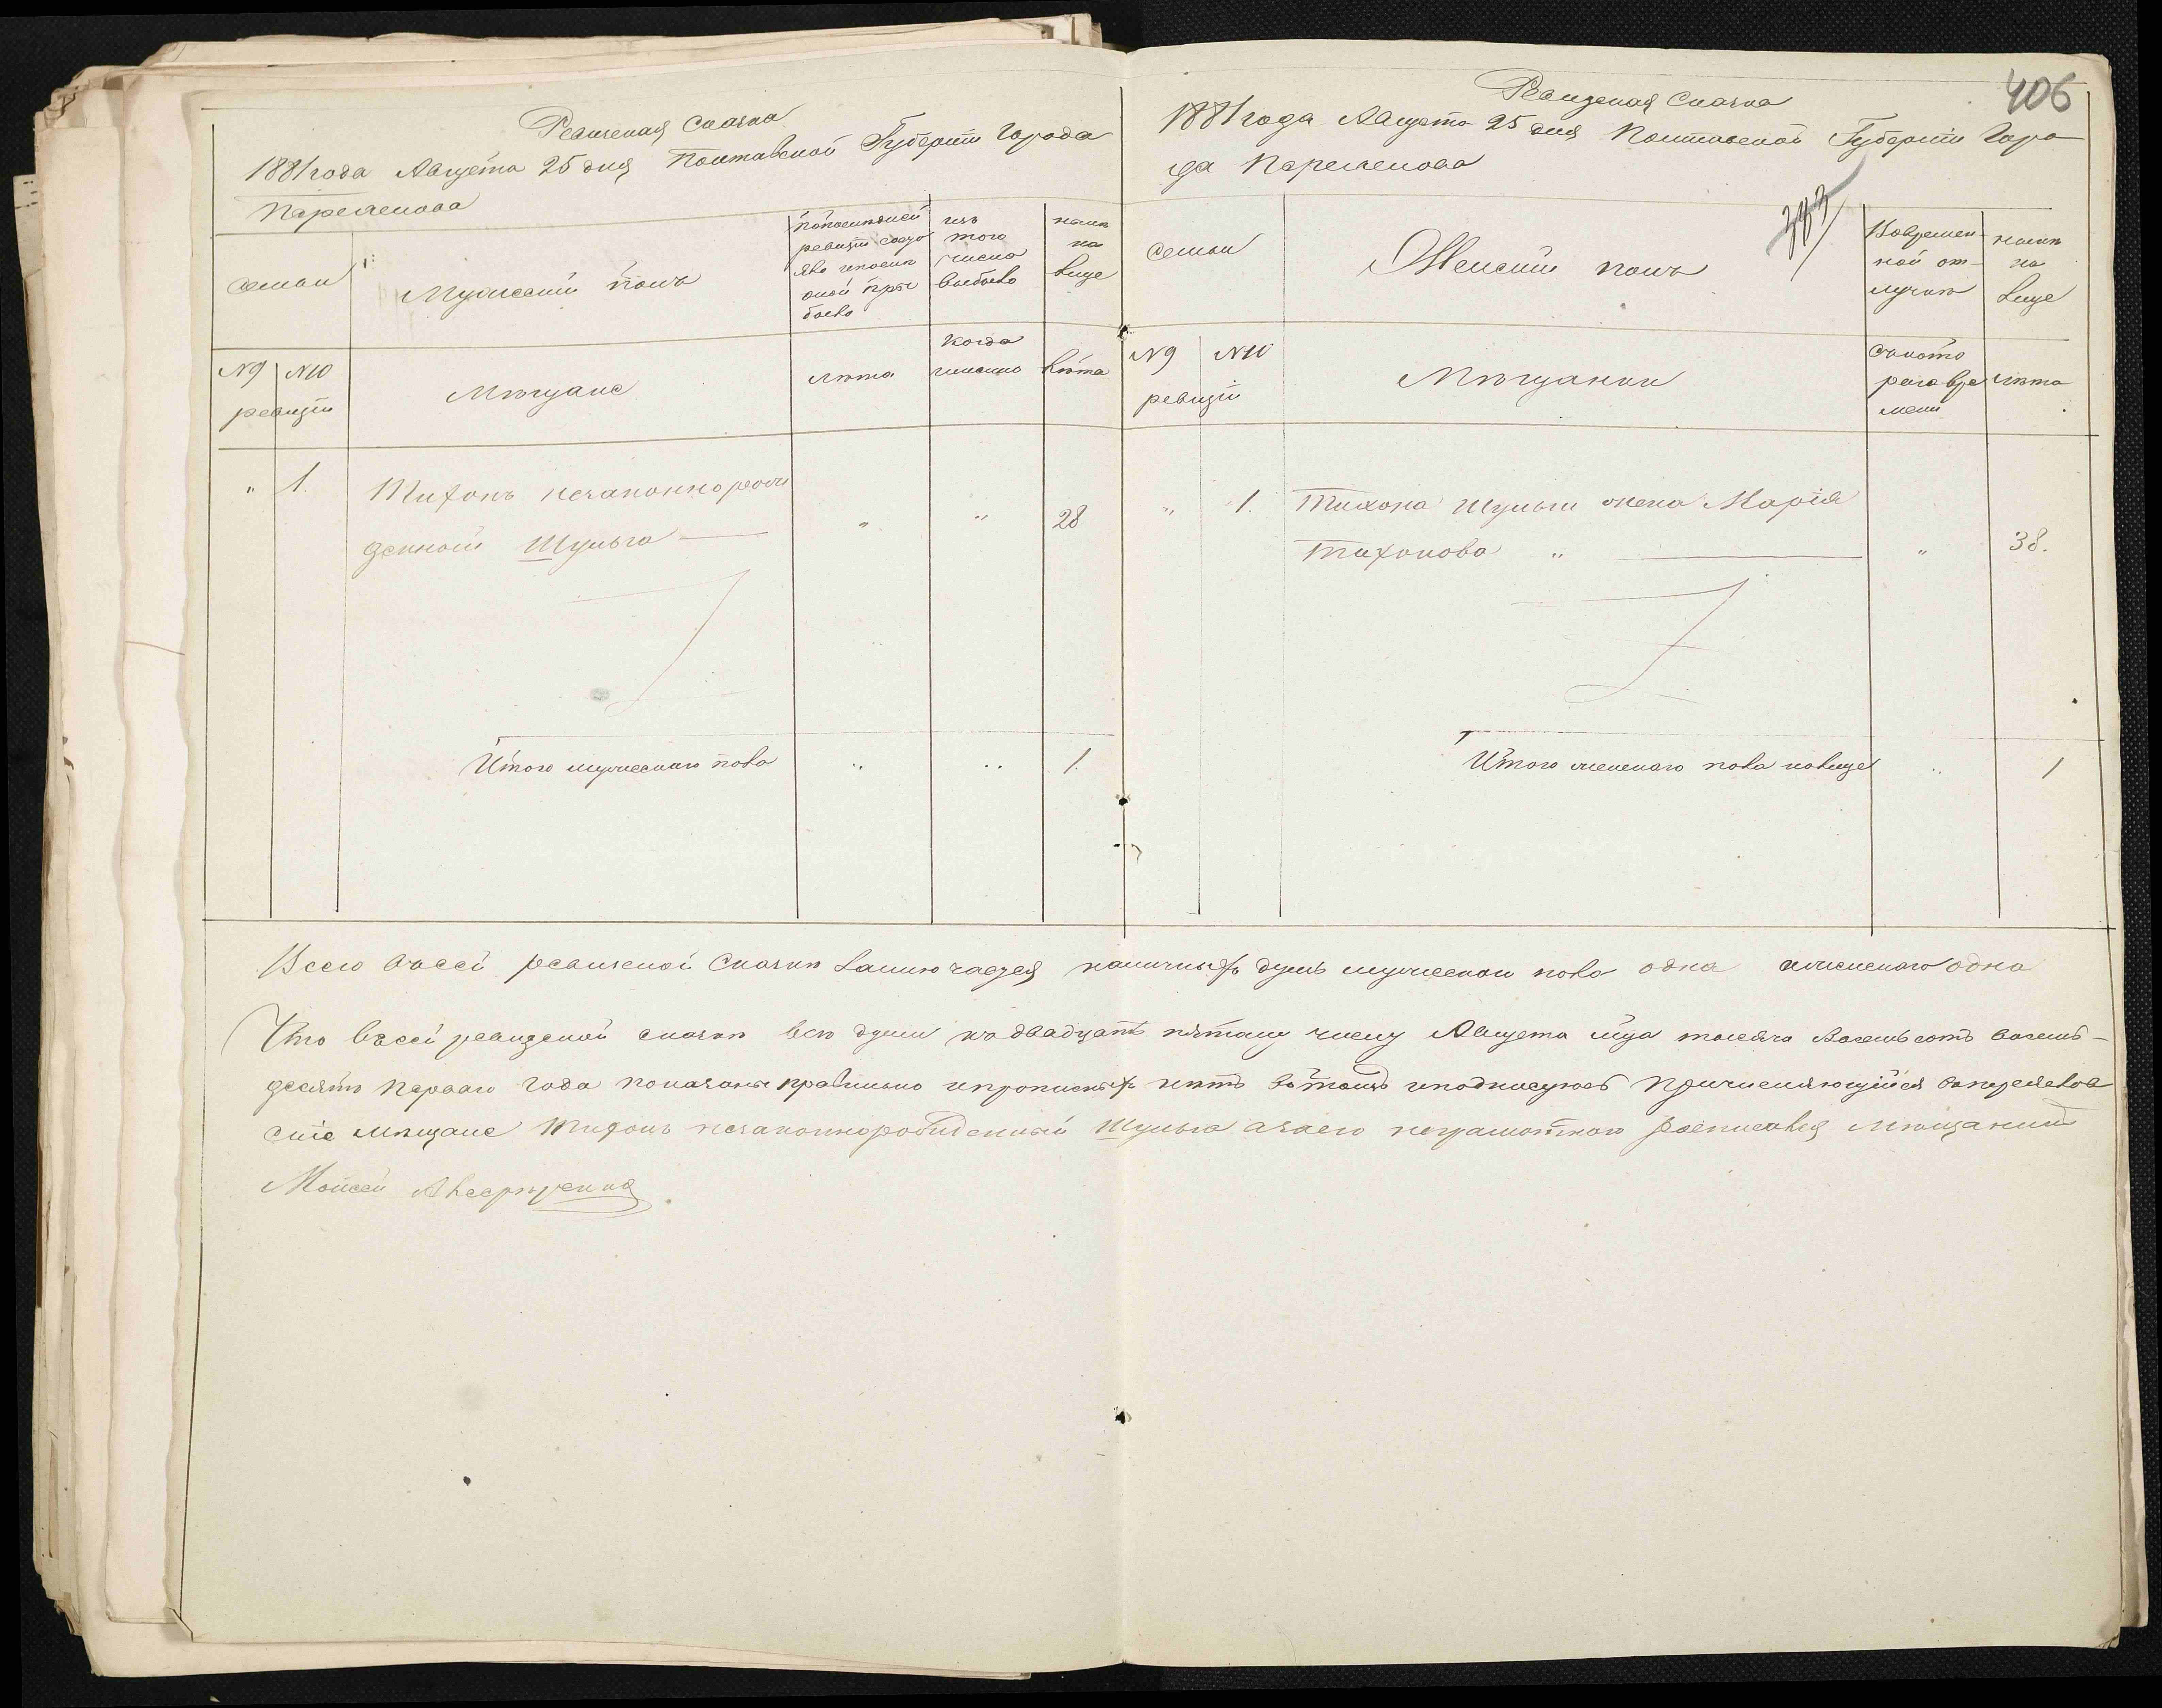 Ревизская Сказка
1881 года Августа 25 дня Полтавской Губернии Города
Переяслова
Семьи
Мужеский полъ
по последней
ревизіи состо
яло и после
оной при
было
изъ
того
числа
выбыло
налич
на
лице
№ 9 № 10
ревизіи
Мѣщане
лѣта
Когда
именно
Лѣта
" 1. Тихонъ незаконнорож
денной Шульга " " 28
Итого мужескаго пола " " 1.
406
Ревизская Сказка
1881 года Августа 25 дня Полтавской Губерніи Горо
да Переяслова
Семьи
Женскій полъ
Вовремен-
ной от-
лучки
налич
на
лице
№ 9 № 10
ревизій
Мѣщанки
съ кото
раго вре
мени
лѣта
" 1. Тихона Шульги жена Марія
Тихонова " " 38.
Итого женскаго пола на лице " 1
Всего въ сей ревизской Сказки заключается наличныхъ душъ мужескаго пола одна и женскаго одна
Что въ сей ревизской сказки все души къ двадцать пятому числу Августа м-ца тысяча восемьсотъ восемь-
десятъ перваго года показаны правильно и прописныхъ нетъ въ томъ и подписуюсь Причисляющійся въ переяслов
скіе мѣщане Тихонъ незаконнорожденный Шульга а за его неграмотнаго росписався мѣщанинъ
Мойсей